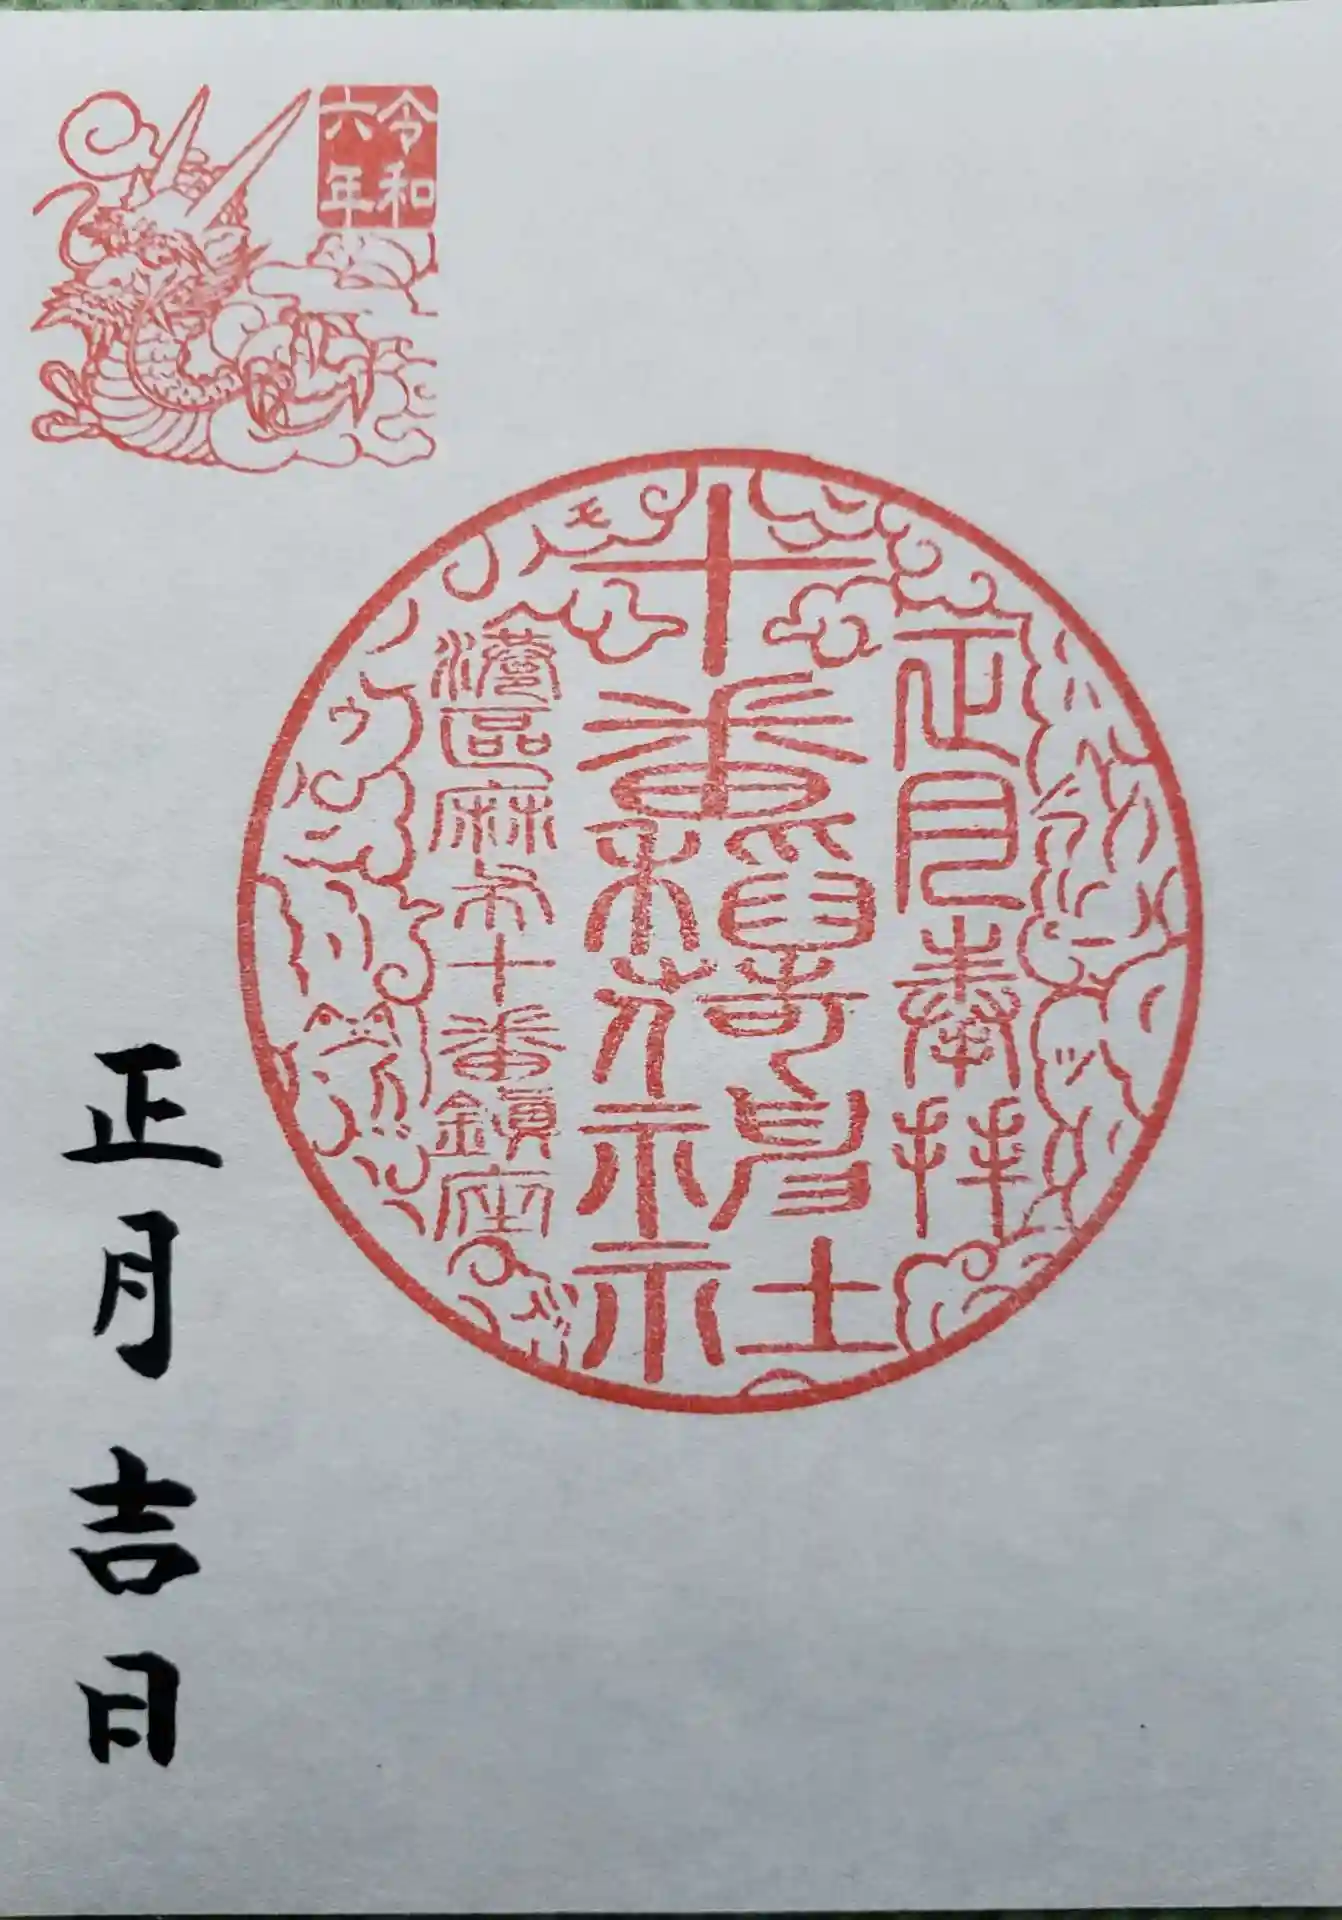 令和
六年
正月奉拝
十番稻荷神社
港區麻布十番鎭座
正月吉日